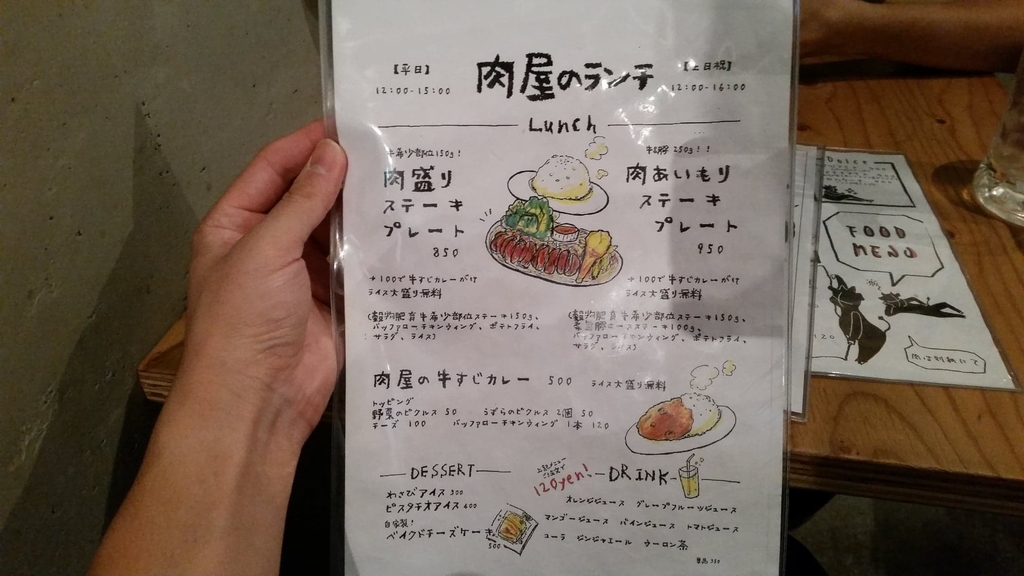 【平日】
12:00-15:00
肉屋のランチ
日祝】
12:00-16:00
Lunch
希少部位150g!
肉盛り
ステーキ
プレート
850
+100で牛すじカレーがけ
ライス大盛り無料
(穀物肥育牛希少部位ステーキ150g、
バッファローチキンウィング、ポテトフライ、
サラダ、ライス)
250g!!
肉あいもり
ステーキ
プレート
950
+100で牛すじカレーがけ
ライス大盛り無料
(穀物肥育牛希少部位ステーキ150g、
ロースステーキ100g、
バッファローチキンウィング、ポテトフライ、
サラダ、ライス)
肉屋の牛すじカレー 500 ライス大盛り無料
トッピング
野菜のピクルス 50 うずらのピクルス 2個 50
チーズ 100 バッファローチキンウィング 1本 120
DESSERT
わさびアイス 300
ピスタチオアイス 400
自家製!
ベイクドチーズケーキ
500
120yen!
DRINK
オレンジジュース グレープフルーツジュース
マンゴージュース パインジュース トマトジュース
コーラ ジンジャエール ウーロン茶
単品 350
Dolce
FOOD
MENU